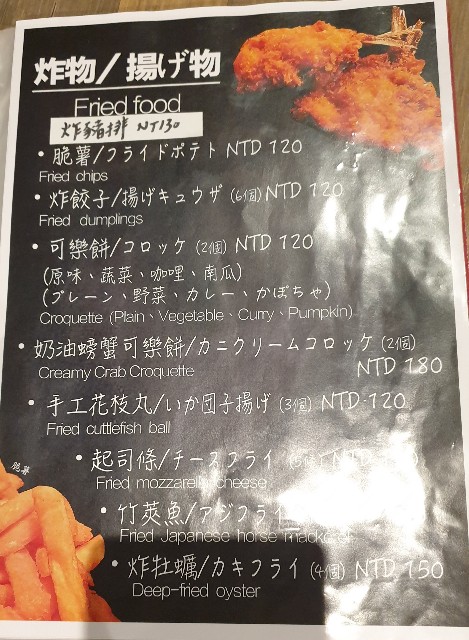 炸物/揚げ物
Fried food
炸豬排 NT130
• 脆薯/フライドポテト NTD 120
Fried chips
• 炸餃子/揚げキュウザ (6個) NTD 120
Fried dumplings
• 可樂餅/コロッケ (2個) NTD 120
(原味、蔬菜、咖哩、南瓜)
(プレーン、野菜、カレー、かぼちゃ)
Croquette (Plain、Vegetable、Curry、Pumpkin)
• 奶油螃蟹可樂餅/カニクリームコロッケ (2個)
Creamy Crab Croquette NTD 180
• 手工花枝丸/いか団子揚げ (3個) NTD 120
Fried cuttlefish ball
脆薯
• 起司條/チースフライ
Fried mozzarella cheese
• 竹莢魚/アジフライ
Fried Japanese horse mackerel
• 炸牡蠣/カキフライ (4個) NTD 150
Deep-fried oyster